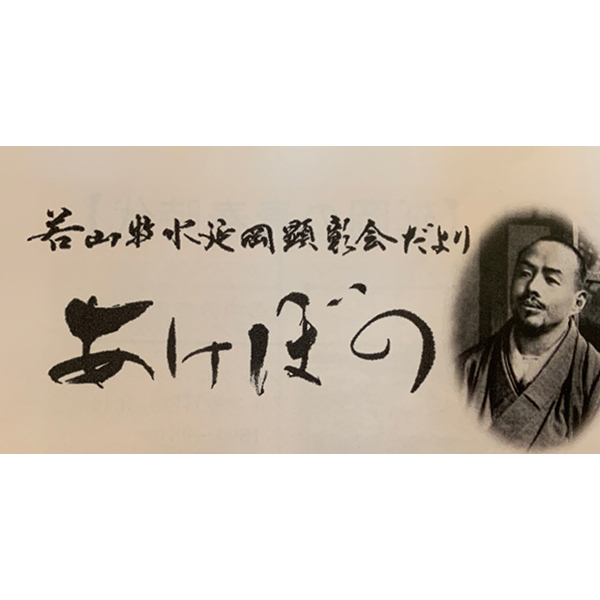 若山牧水延岡顕彰会だより
あけぼの